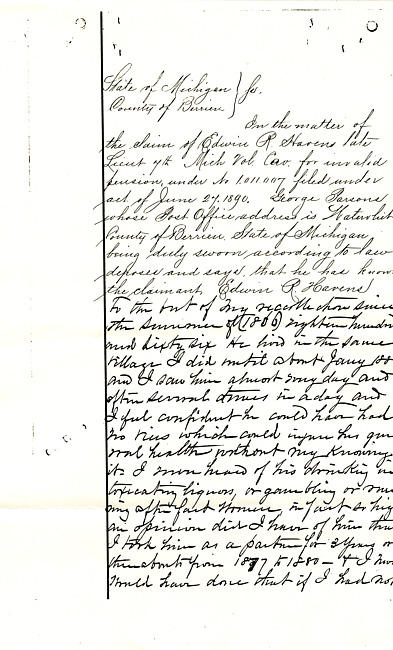 State of Michigan } ss.
County of Berrien
In the matter of
the claim of Edwin R Havens late
Lieut 7th Mich Vol. Cav. for invalid
pension, under No 1.011.007 filed under
act of June 27. 1890. George Parsons
whose Post Office address is Watervliet
County of Berrien, State of Michigan,
being duly sworn according to law
deposes and says, that he has known
the claimant, Edwin R Havens
to the best of my recollection since
the summer of (1866) eighteen hundred
and sixty six He lived in the same
village I did until about Jany
and I saw him almost every day and
often several times in a day and
I feel confident he could have had
no vices which could injure his gen
eral health without my knowing
it. I never heard of his drinking in
toxicating liquors, or gambling or run
ing after fast women, in fact so high
an opinion did I have of him that
I took him as a partner for 3 years or
thereabouts from 1877 to 1880 - & I
would have done that if I had not